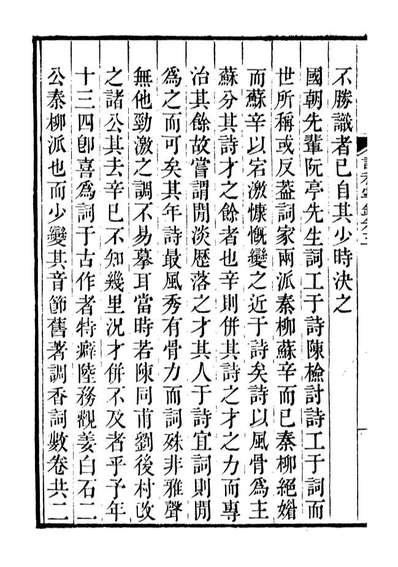 不勝識者已自其少時決之
國朝先輩阮亭先生詞工于詩陳檢討詩工于詞而
世所稱或反葢詞家兩派秦柳蘇辛而已秦柳絕㜺
而蘇辛以宕激慷慨變之近于詩矣詩以風骨爲主
蘇分其詩才之餘者也辛則併其詩之才之力而專
治其餘故嘗謂閒淡歷落之才其人于詩宜詞則閒
爲之而可矣其年詩最風秀有骨力而詞殊非雅聲
無他勁激之調不易摹耳當時若陳同甫劉後村改
之諸公其去辛已不知幾里况才併不及者乎予年
十三四卽喜爲詞于古作者特癖陸務觀姜白石二
公秦柳派也而少變其音節舊著調香詞數卷共二